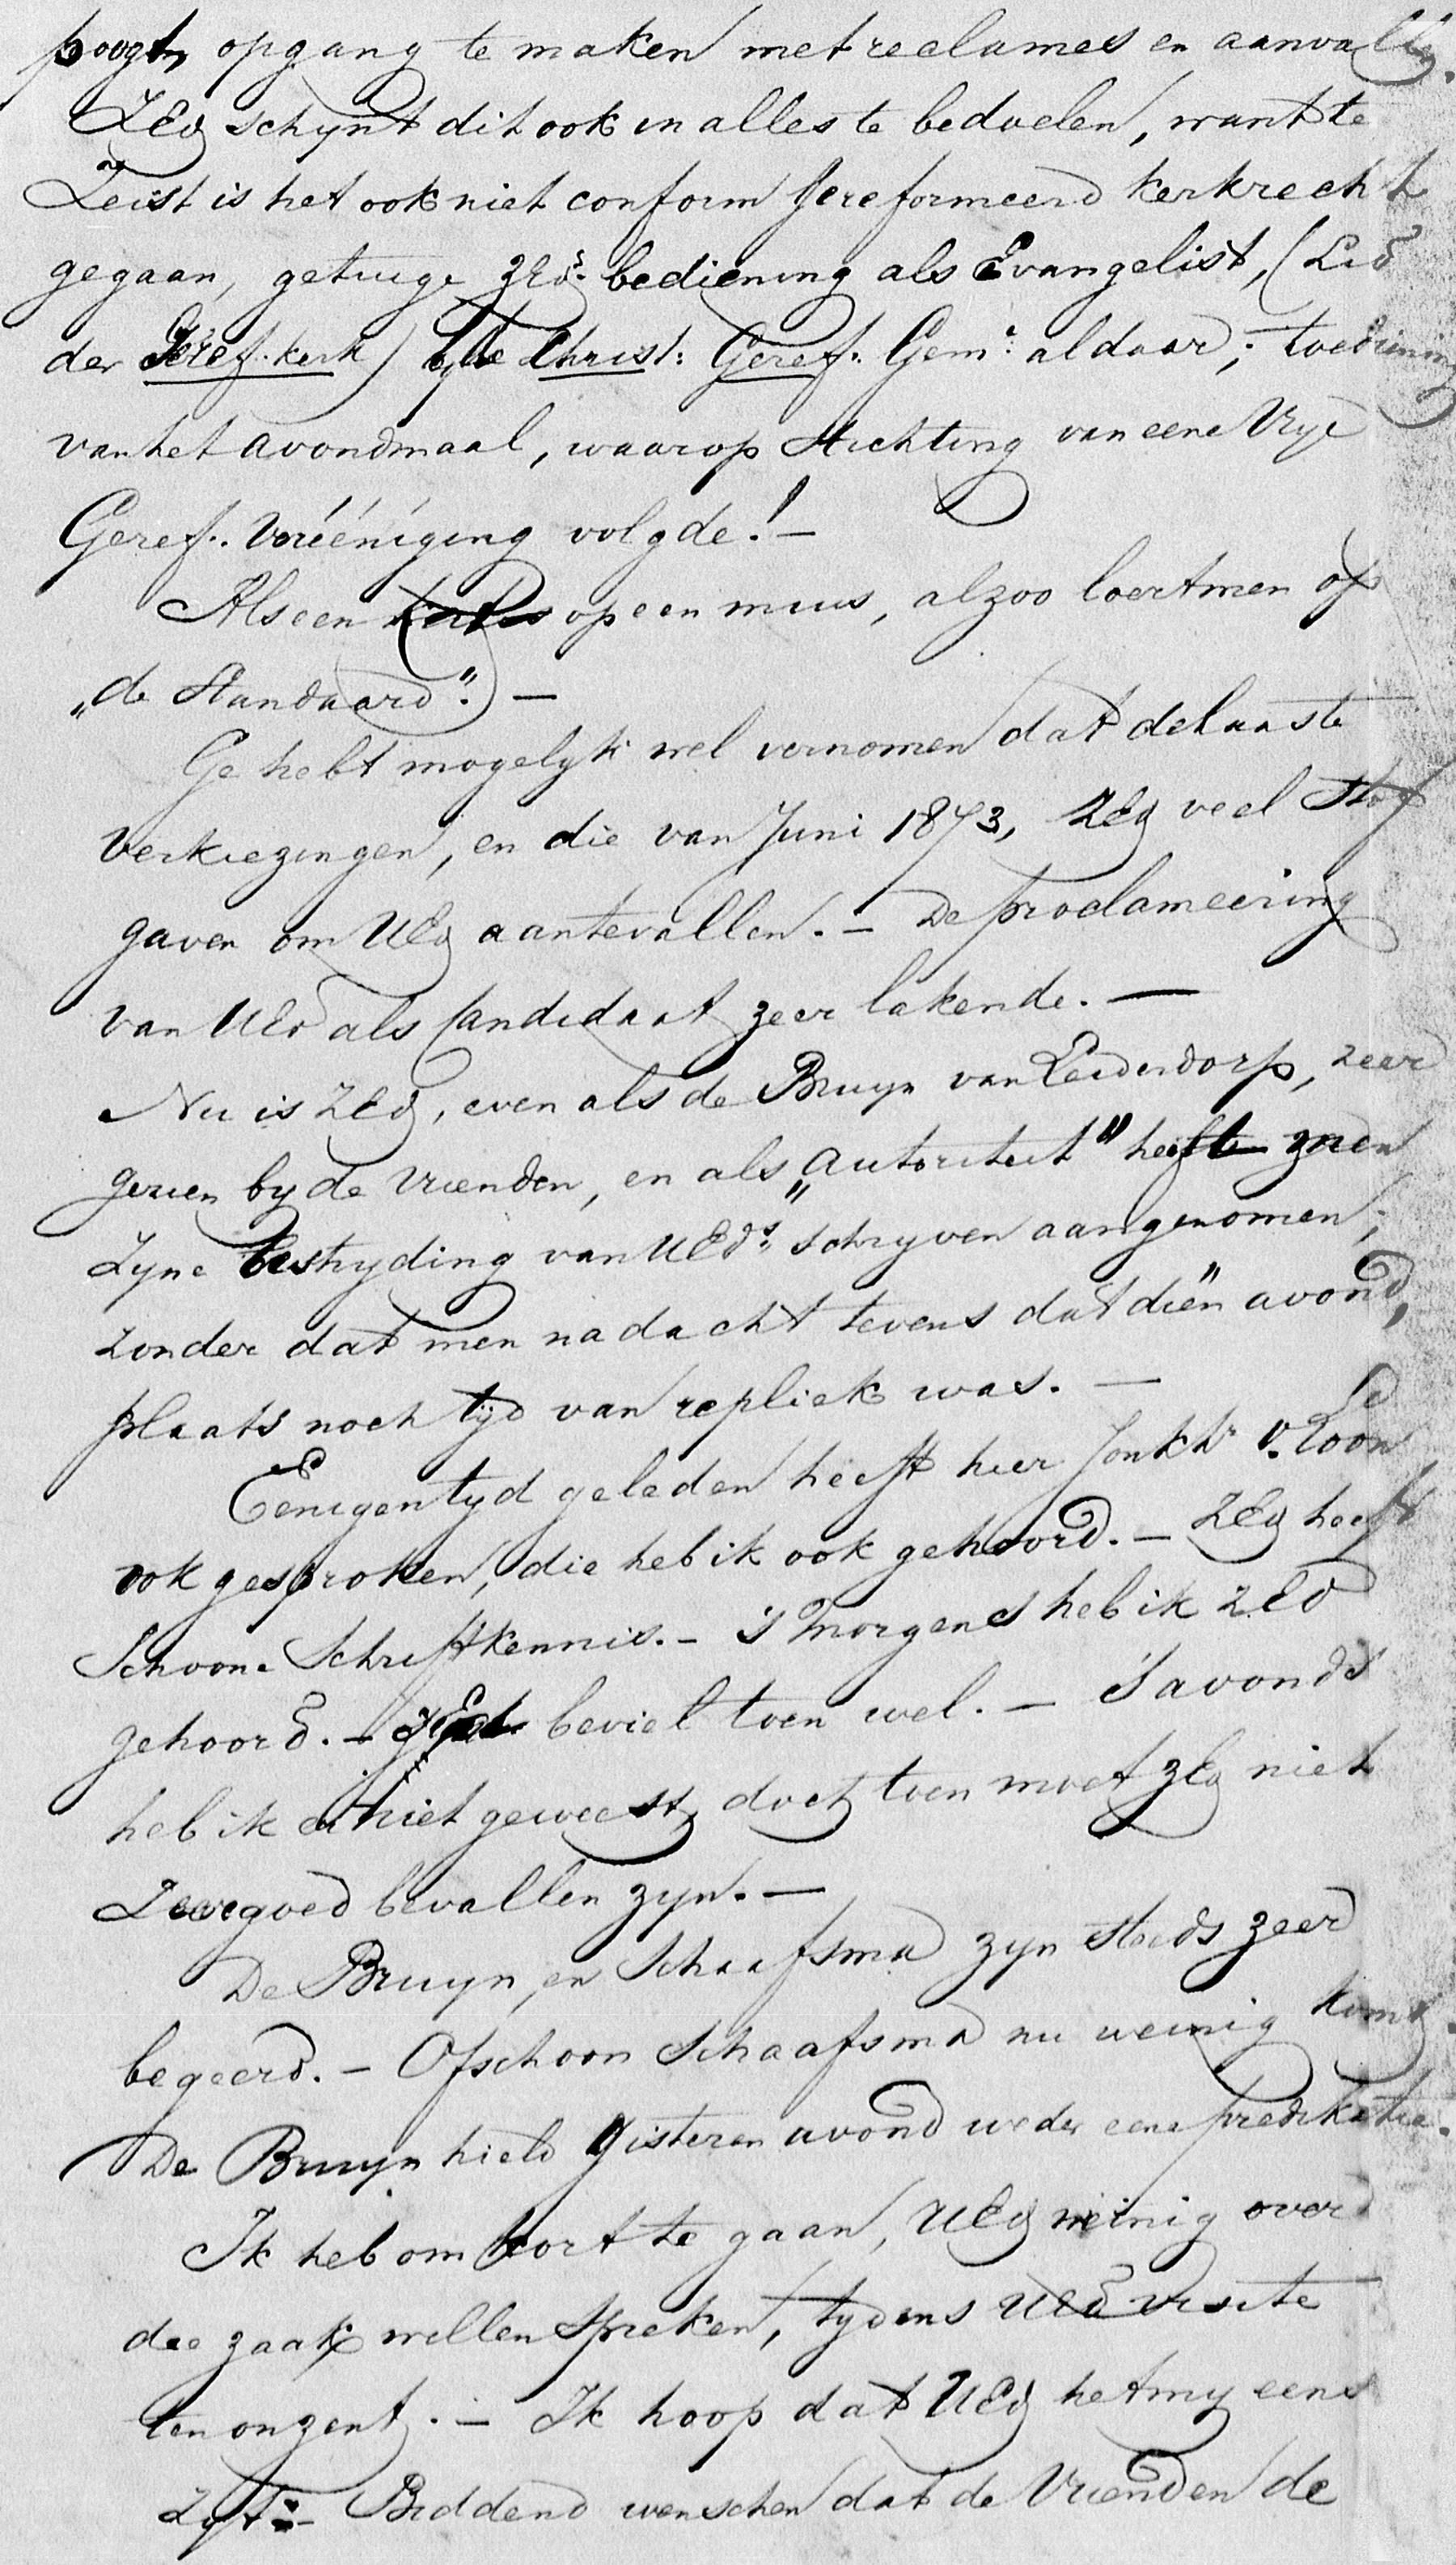 poogt, opgang te maken met reclames en aanvallen.
ZEd schynt dit ook in alles te bedoelen, want te
Zeist is het ook niet conform Gereformeerd kerkrecht
gegaan, getuige ZEd:s bediening als Evangelist, (Lid
der Geref. kerk) by de Christ: Geref. Gem:e aldaar; toediening
van het avondmaal, waarop stichting van eene Vrye
Geref. Veréeniging volgde! —
Als een op een muis, alzoo loert men op
„de Standaard". —
Ge hebt mogelyk wel vernomen dat de laaste
verkiezingen, en die van Juni 1873, ZEd veel stof
gaven om UEd aantevallen. — De proclameering
van UEd als Candidaat zeer lakende. —
Nu is ZEd, even als de Bruyn van Leiderdorp, zeer
gezien by de Vrienden, en als „autoriteit" heeft men
Zyne bestryding van UEds: schryven aangenomen;
zonder dat men nadacht tevens dat dien avond,
plaats noch tijd van repliek was. —
Eenigen tyd geleden heeft hier Jonkhr v. Loon
ook gesproken, die heb ik ook gehoord. — ZEd heeft
Schoone Schriftkennis. — 's Morgens heb ik ZEd
gehoord. — beviel toen wel. — 's avonds
heb ik er niet geweest, doch toen moet ZEd niet
Zeer goed bevallen zyn. —
De Bruyn, en Schaafsma zyn steeds zeer
begeerd. — Ofschoon Schaafsma nu weinig komt.
De Bruyn hield gisteren avond weder eene predikatie.
Ik heb om kort te gaan, UEd weinig over
die zaak willen spreken, tydens UEd visite
ten onzent. — Ik hoop dat UEd het my eens
Zyt: — Biddend wenschen dat de Vrienden de